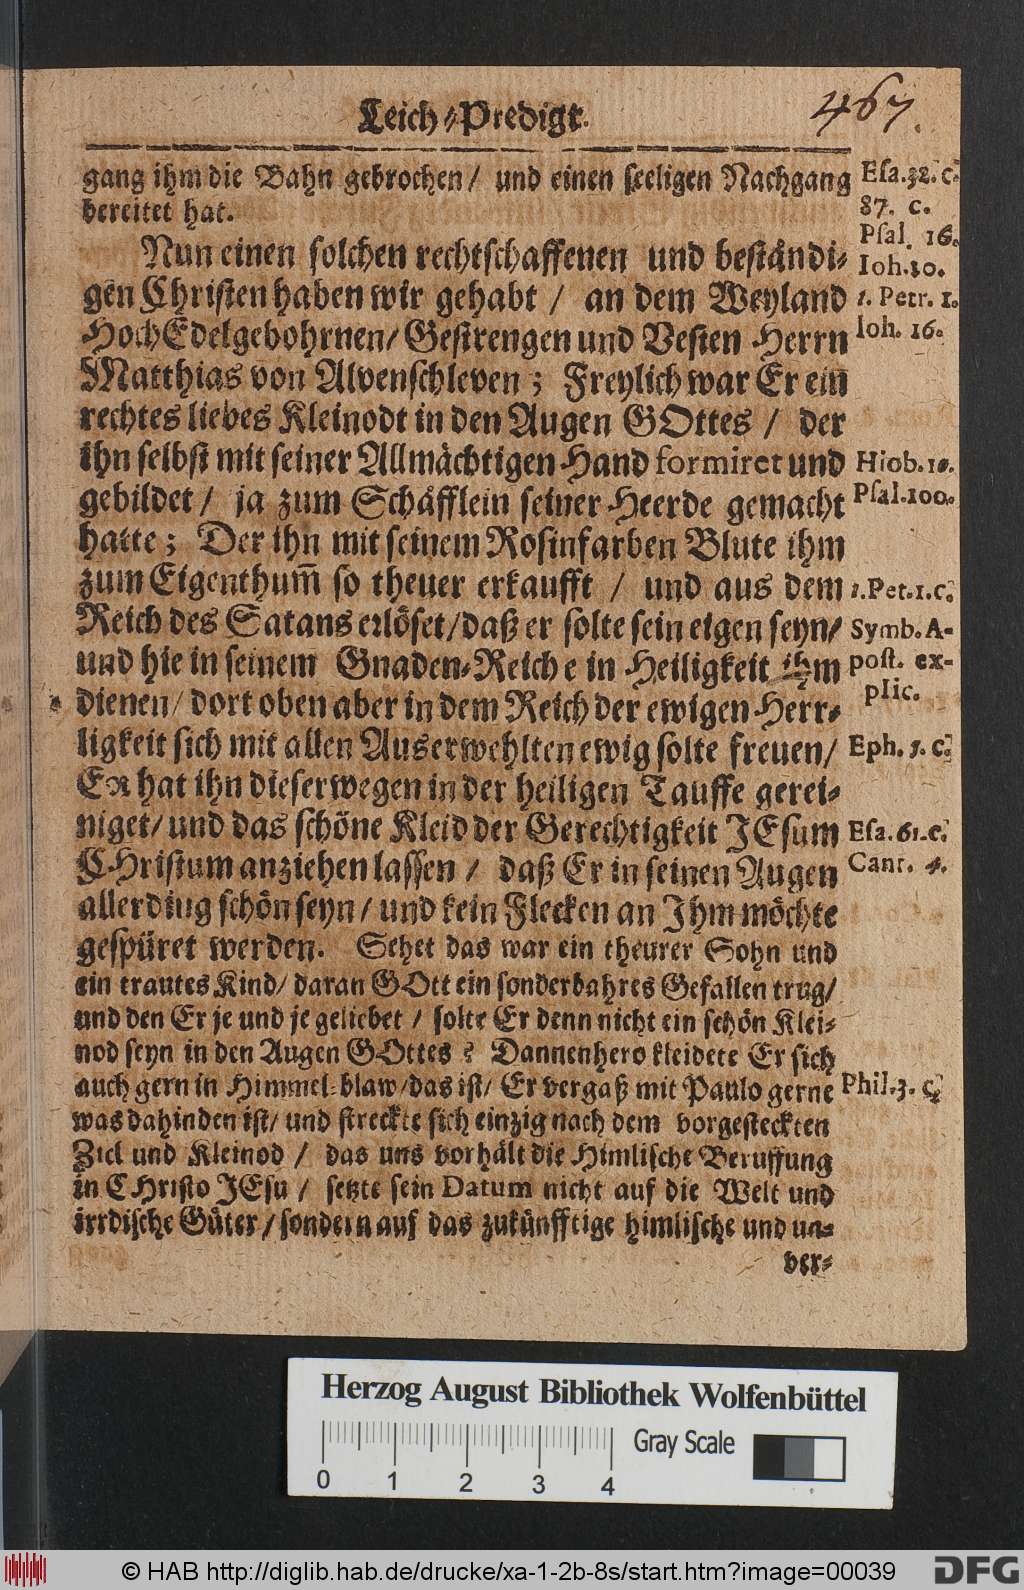 Leich-Predigt.
467.
gang ihm die Bahn gebrochen/ und einen seeligen Nachgang
bereitet hat.
Nun einen solchen rechtschaffenen und beståndi-
gen Christen haben wir gehabt / an dem Weyland
HochEdelgebohrnen/ Gestrengen und Vesten Herrn
Matthias von Alvenschleven; Freylich war Er ein
rechtes liebes Kleinodt in den Augen GOttes / der
ihn selbst mit seiner Allmächtigen Hand formiret und
gebildet / ja zum Schåfflein seiner Heerde gemacht
hatte; Der ihn mit seinem Rosinfarben Blute ihm
zum Eigenthum̃ so theuer erkaufft / und aus dem
Reich des Satans erlöset/daß er solte sein eigen seyn/
und hie in seinem Gnaden-Reiche in Heiligkeit ihm
dienen/ dort oben aber in dem Reich der ewigen Herr-
ligkeit sich mit allen Auserwehlten ewig solte freuen/
Er hat ihn dieserwegen in der heiligen Tauffe gerei-
niget/ und das schöne Kleid der Gerechtigkeit JEsum
CHristum anziehen lassen / daß Er in seinen Augen
allerding schön seyn/ und kein Flecken an Ihm möchte
gespüret werden. Sehet das war ein theurer Sohn und
ein trautes Kind/ daran GOtt ein sonderbahres Gefallen trug/
und den Er je und je geliebet / solte Er denn nicht ein schön Klei-
nod seyn in den Augen GOttes? Dannenhero kleidete Er sich
auch gern in Himmel-blaw/das ist/ Er vergaß mit Paulo gerne
was dahinden ist/ und streckte sich einzig nach dem vorgesteckten
Ziel und Kleinod / das uns vorhält die Himlische Beruffung
in CHristo JEsu / setzte sein Datum nicht auf die Welt und
irrdische Güter/ sondern auf das zukünfftige himlische und un-
ver-
Esa.32. c.
87. c.
Psal. 16.
Ioh.10.
1. Petr. 1.
Ioh. 16.
Hiob.10.
Psal.100.
1.Pet.1.c.
Symb.A-
post. ex-
plic.
Eph. 5. c.
Esa.61.c.
Cant. 4.
Phil.3. c.
Herzog August Bibliothek Wolfenbüttel
Gray Scale
0 1 2 3 4
© HAB http://diglib.hab.de/drucke/xa-1-2b-8s/start.htm?image=00039
DFG